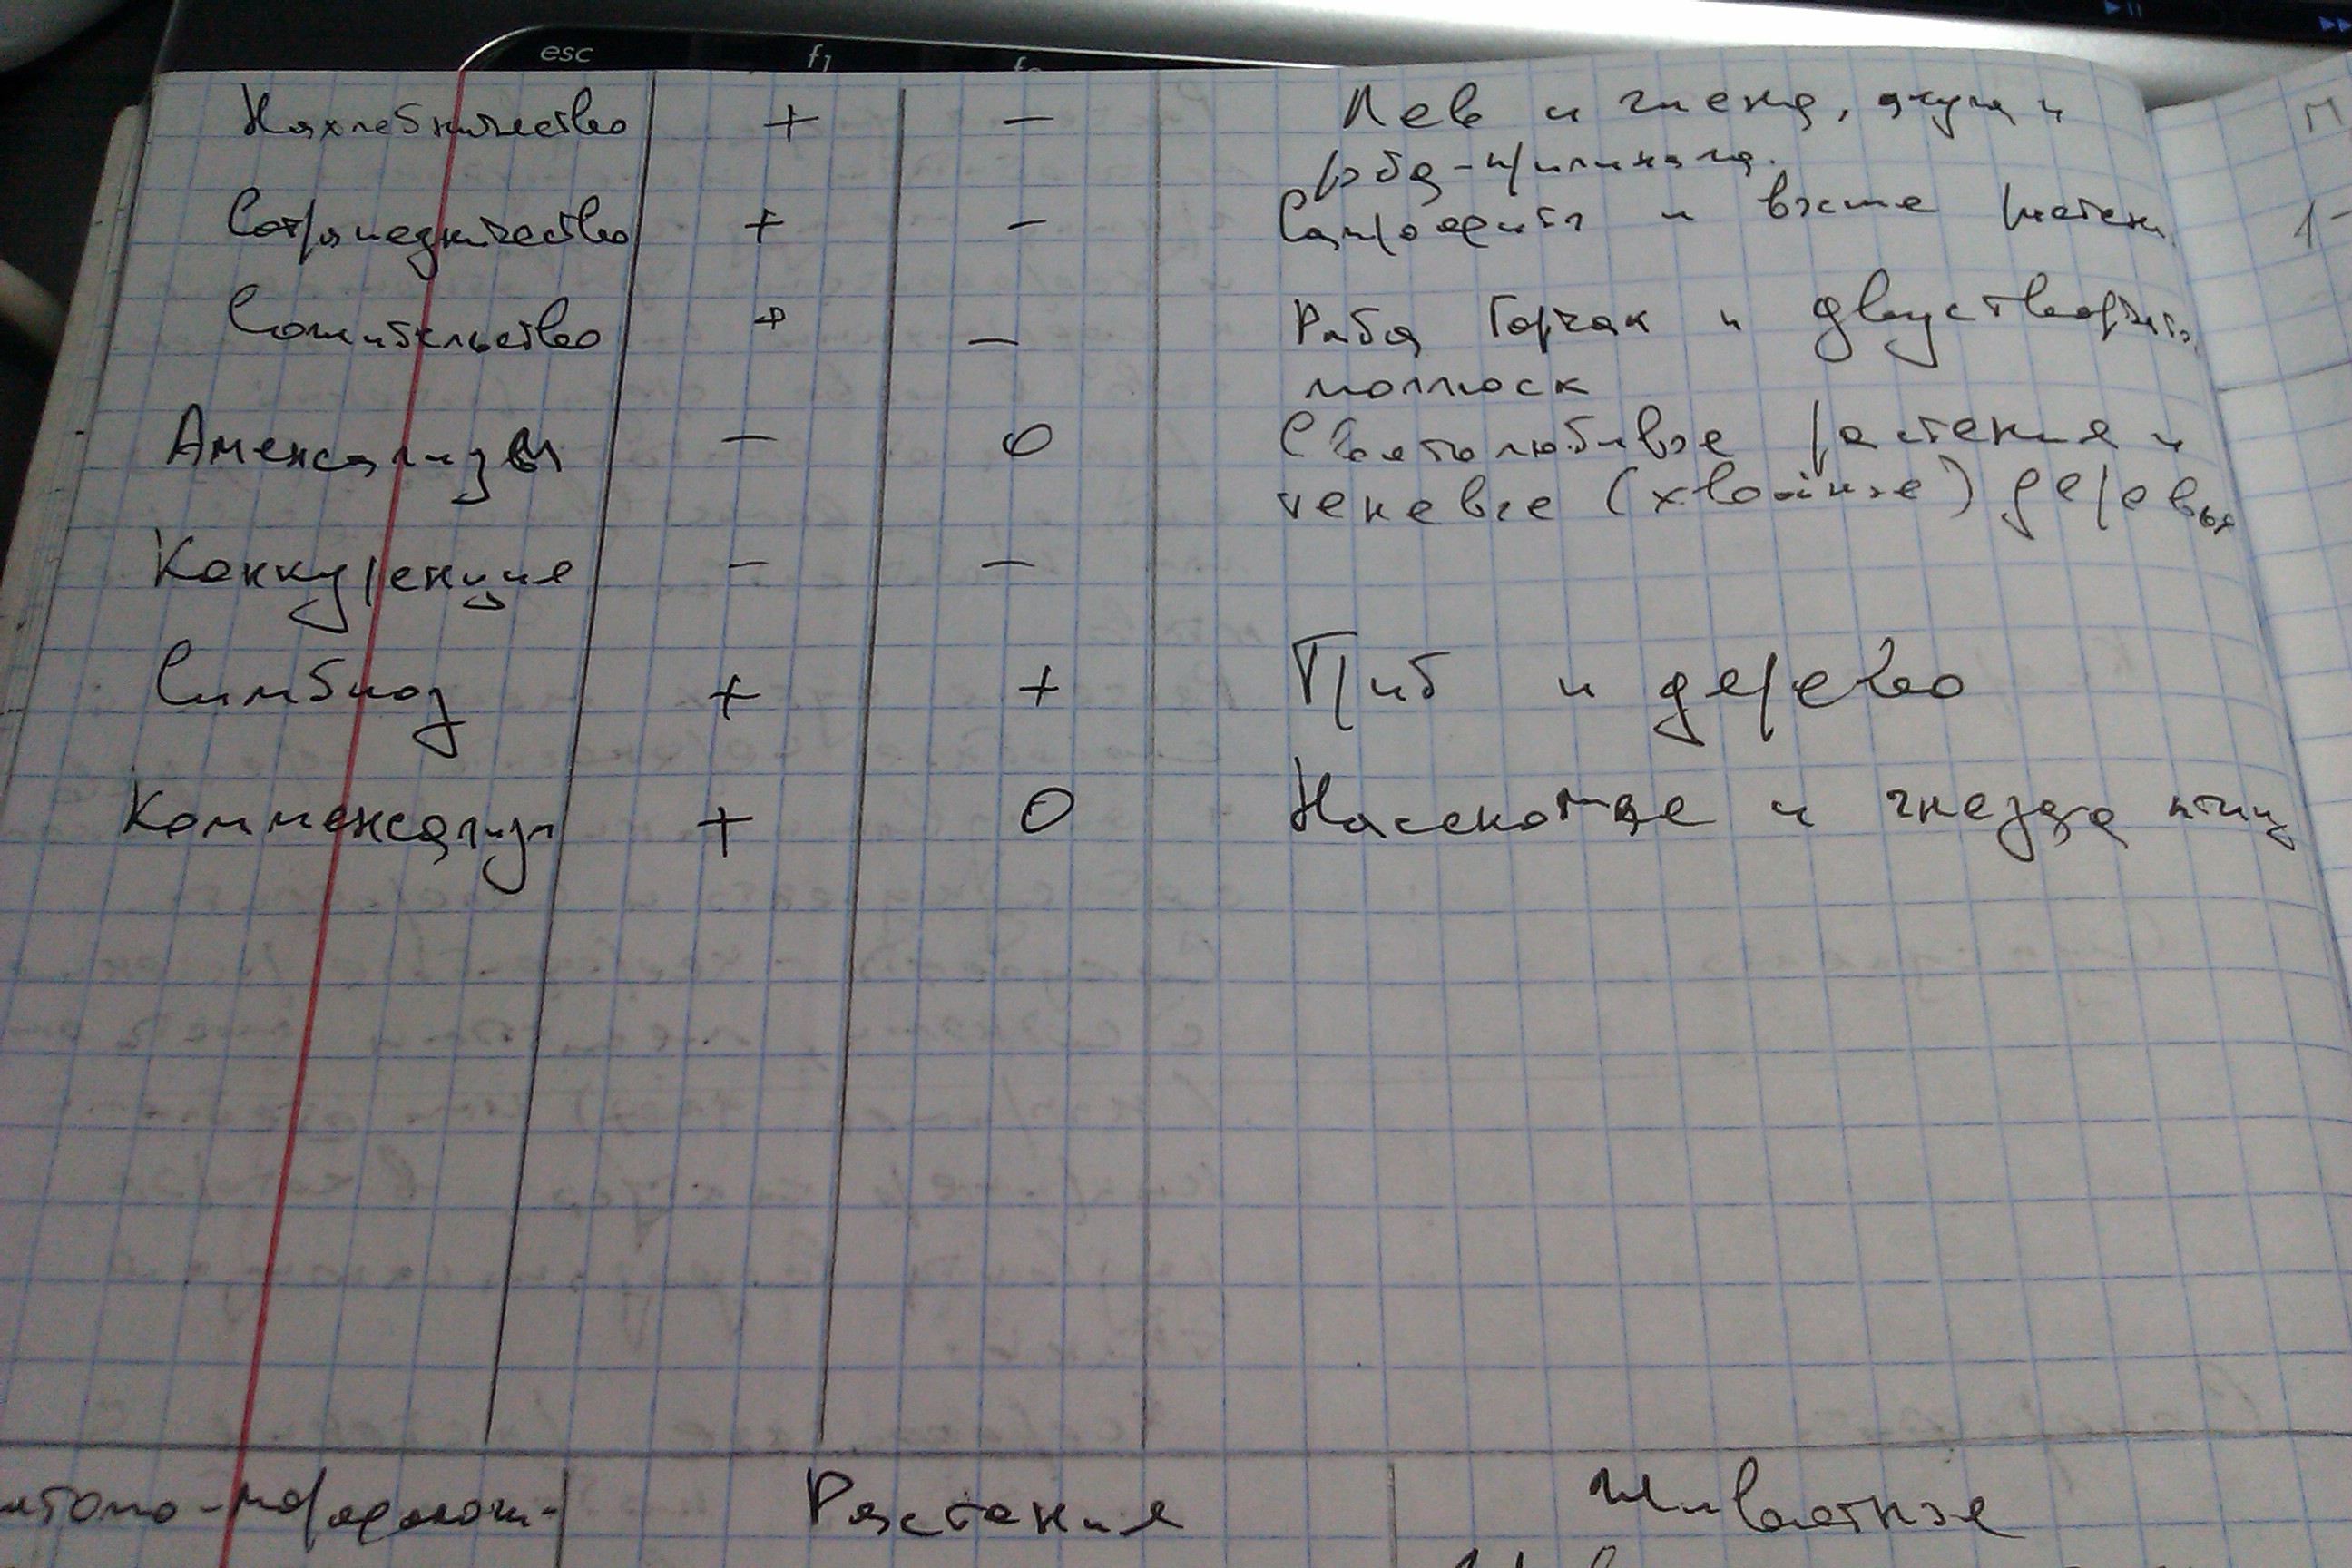 esc f1
Нахлебничество + − Лев и гиена, акула и
рыба-прилипала.
Сотрапедничество + − Сапрофиты и высшие растен.
Сожительство + − Рыба Горчак и двустворчат.
моллюск
Аменсализм − 0 Светолюбивые растения и
теневые (хвойные) деревья
Конкуренция − −
Симбиоз + + Гриб и дерево
Комменсализм + 0 Насекомые и гнезда птиц
атомо-морфологи- Растения Животные